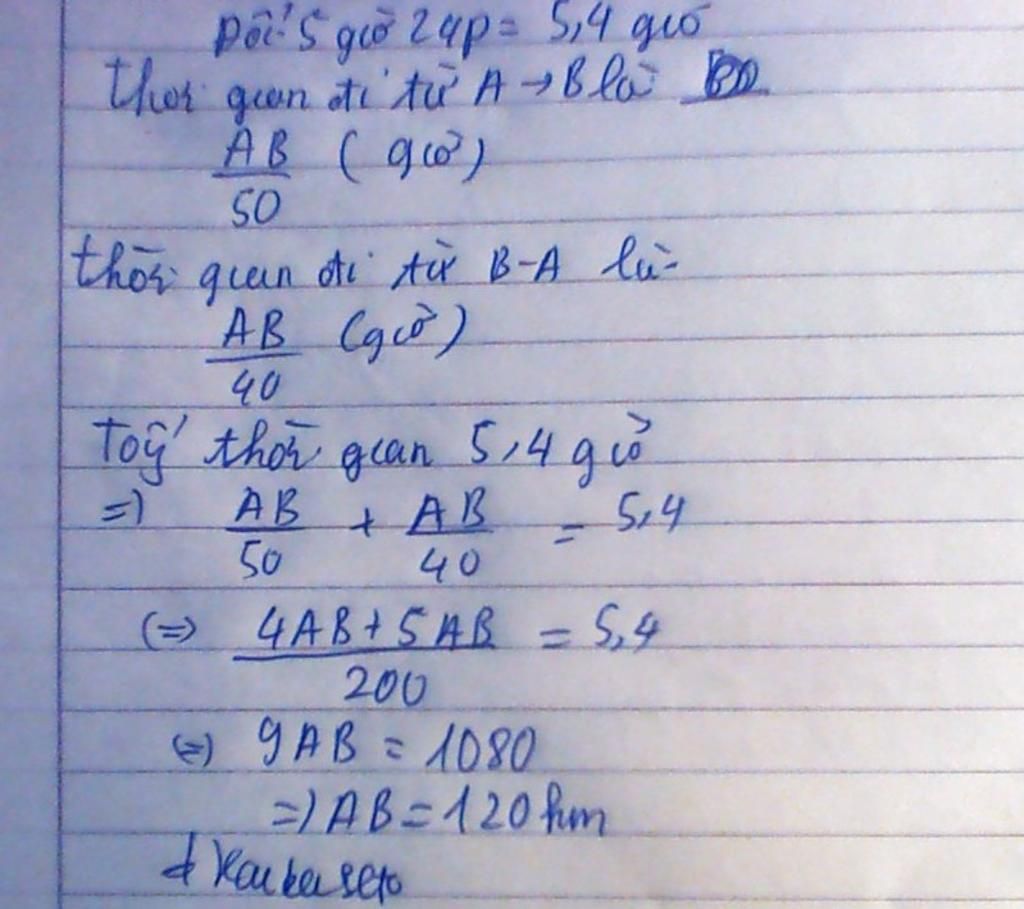 Đổi 5 giờ 24p = 5,4 giờ
thời gian đi từ A → B là
AB/50 (giờ)
thời gian đi từ B-A là
AB/40 (giờ)
thời gian 5,4 giờ
=) AB/50 + AB/40 = 5,4
(=) 4AB + 5AB/200 = 5,4
(=) 9AB = 1080
=) AB = 120 km